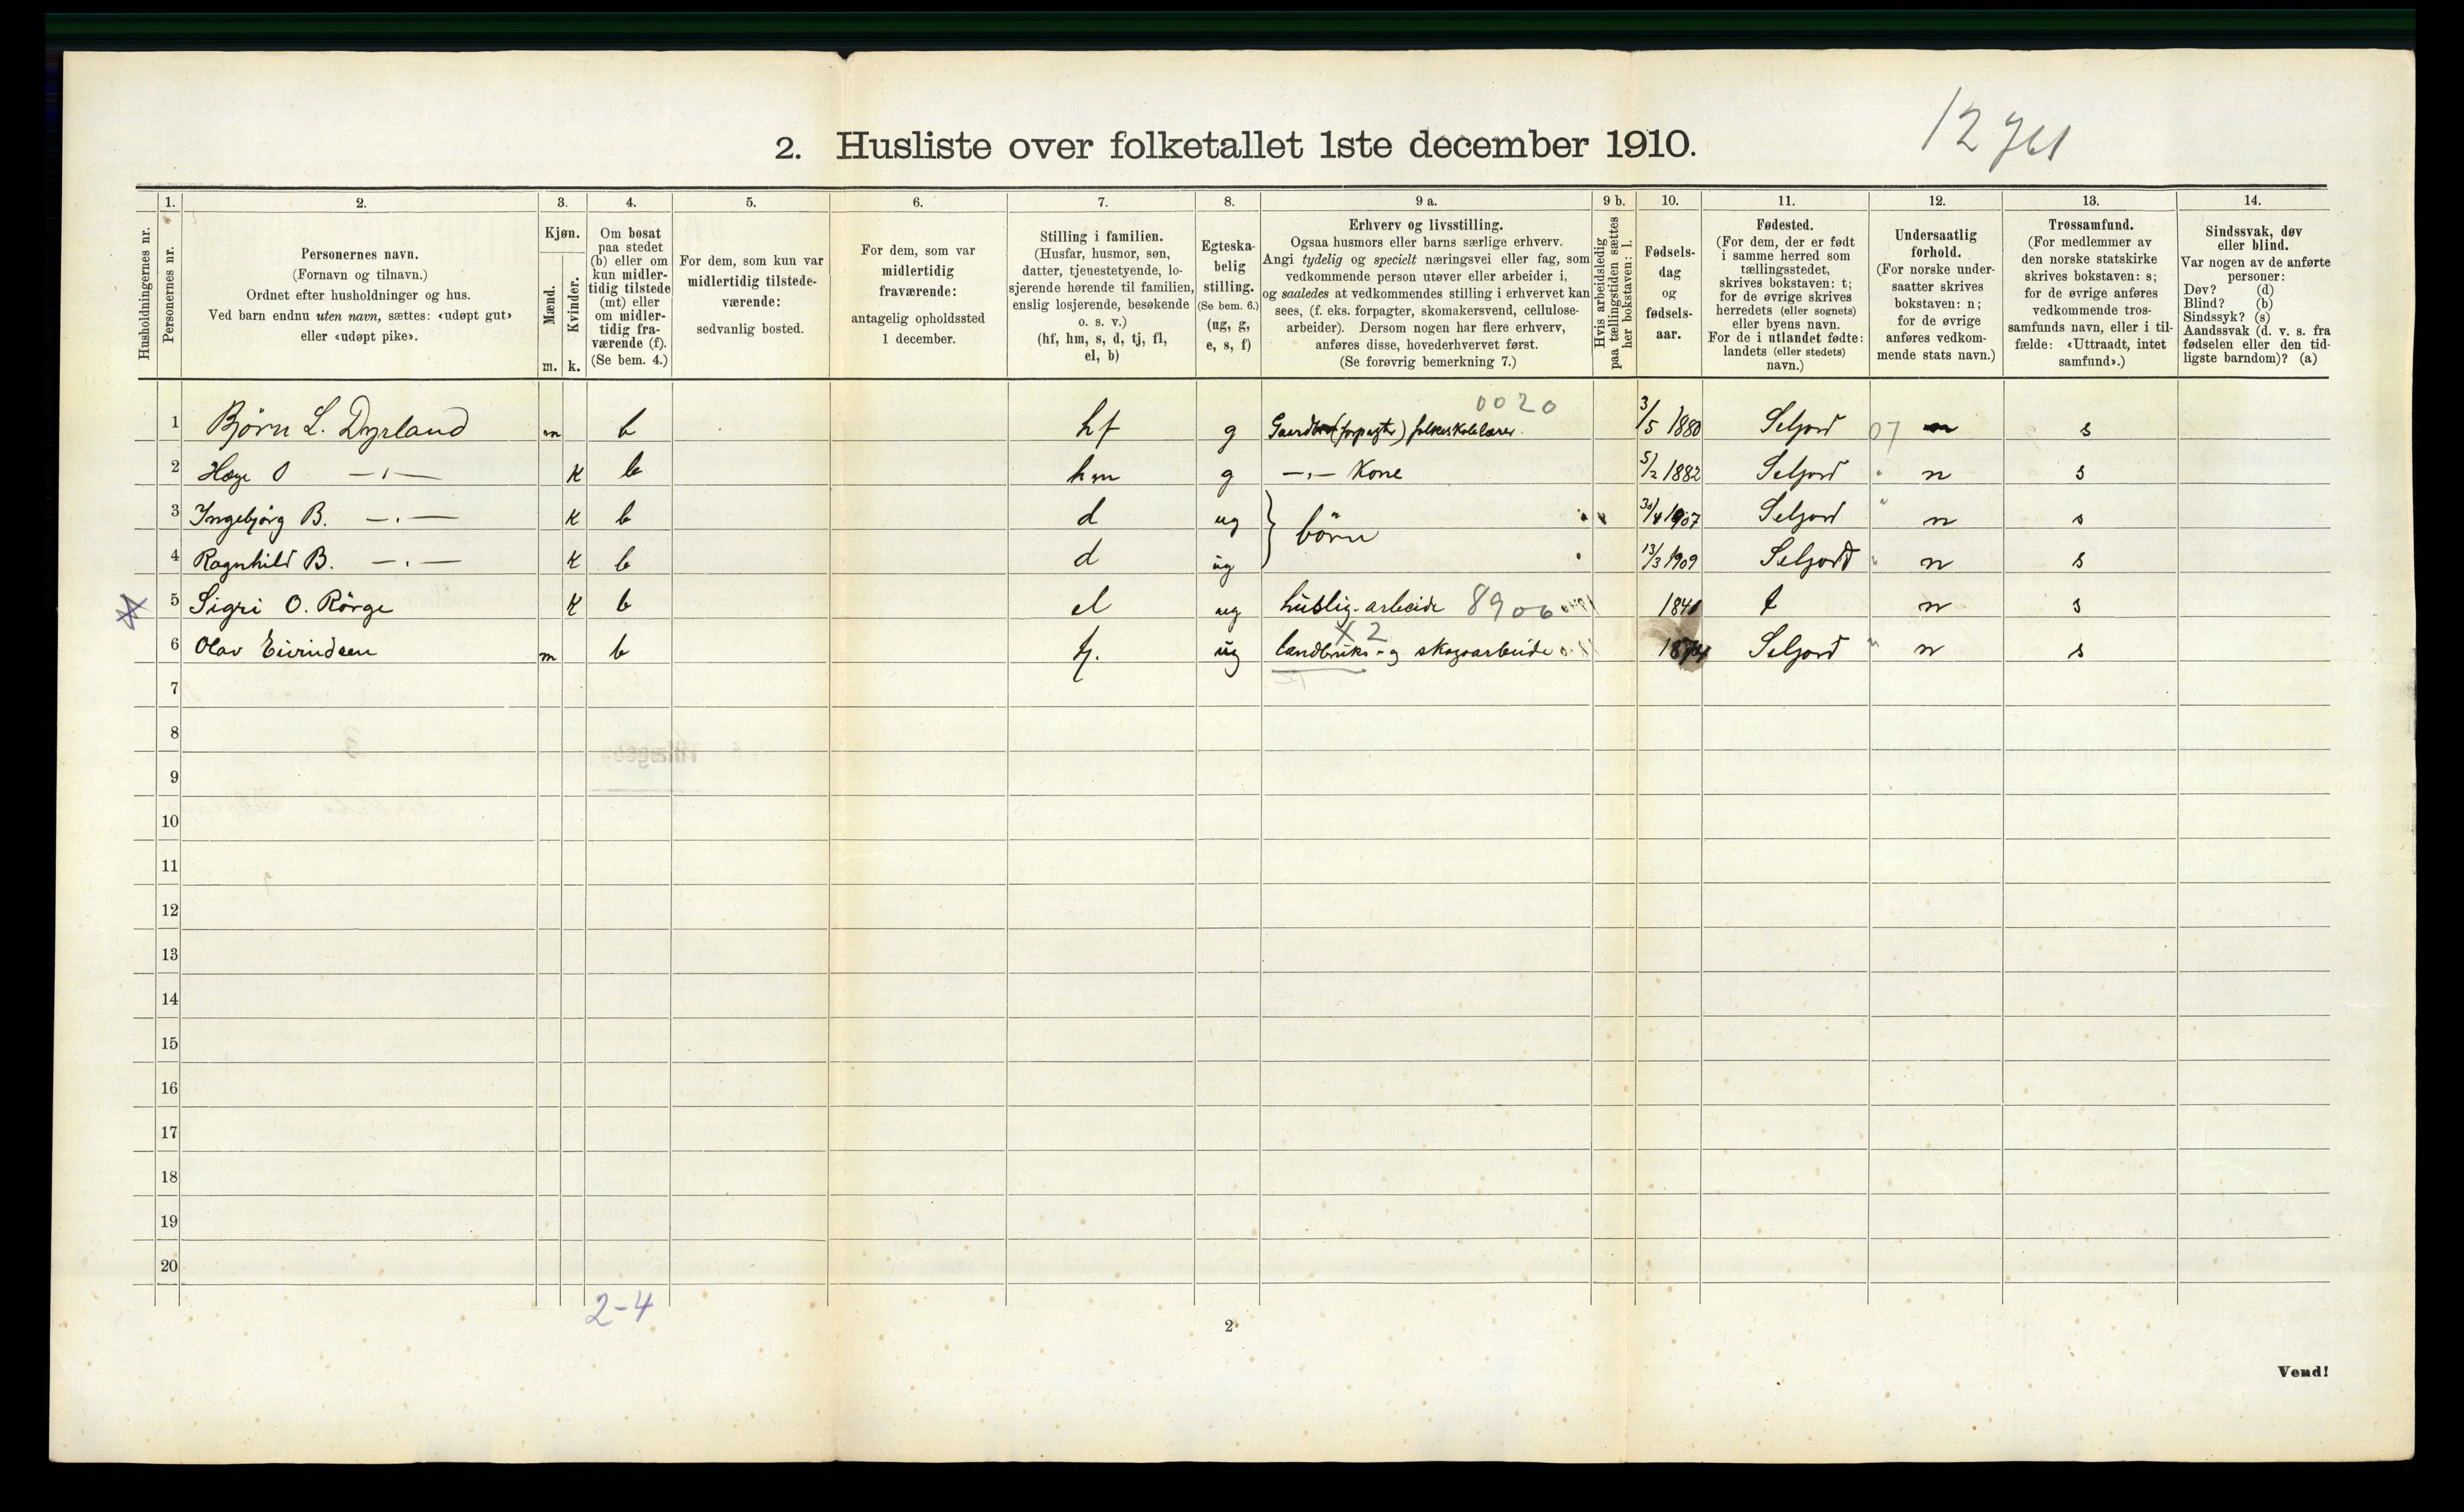 12761
2. Husliste over folketallet 1ste december 1910.
Husholdningernes nr.
1. Personernes nr.
2. Personernes navn.
(Fornavn og tilnavn.)
Ordnet efter husholdninger og hus.
Ved barn endnu uten navn, sættes: «udøpt gut»
eller «udøpt pike».
3. Kjøn.
Mænd. m.
Kvinder. k.
4. Om bosat
paa stedet
(b) eller om
kun midler-
tidig tilstede
(mt) eller
om midler-
tidig fra-
værende (f).
(Se bem. 4.)
5. For dem, som kun var
midlertidig tilstede-
værende:
sedvanlig bosted.
6. For dem, som var
midlertidig
fraværende:
antagelig opholdssted
1 december.
7. Stilling i familien.
(Husfar, husmor, søn,
datter, tjenestetyende, lo-
sjerende hørende til familien,
enslig losjerende, besøkende
o. s. v.)
(hf, hm, s, d, tj, fl,
el, b)
8. Egteska-
belig
stilling.
(Se bem. 6.)
(ug, g,
e, s, f)
9 a. Erhverv og livsstilling.
Ogsaa husmors eller barns særlige erhverv.
Angi tydelig og specielt næringsvei eller fag, som
vedkommende person utøver eller arbeider i,
og saaledes at vedkommendes stilling i erhvervet kan
sees, (f. eks. forpagter, skomakersvend, cellulose-
arbeider). Dersom nogen har flere erhverv,
anføres disse, hovederhvervet først.
(Se forøvrig bemerkning 7.)
9 b. Hvis arbeidsledig
paa tællingstiden sættes
her bokstaven: l.
10. Fødsels-
dag
og
fødsels-
aar.
11. Fødested.
(For dem, der er født
i samme herred som
tællingsstedet,
skrives bokstaven: t;
for de øvrige skrives
herredets (eller sognets)
eller byens navn.
For de i utlandet fødte:
landets (eller stedets)
navn.)
12. Undersaatlig
forhold.
(For norske under-
saatter skrives
bokstaven: n;
for de øvrige
anføres vedkom-
mende stats navn.)
13. Trossamfund.
(For medlemmer av
den norske statskirke
skrives bokstaven: s;
for de øvrige anføres
vedkommende tros-
samfunds navn, eller i til-
fælde: «Uttraadt, intet
samfund».)
14. Sindssvak, døv
eller blind.
Var nogen av de anførte
personer:
Døv? (d)
Blind? (b)
Sindssyk? (s)
Aandssvak (d. v. s. fra
fødselen eller den tid-
ligste barndom)? (a)
0020
1 Björn L. Dyrland m b hf g (forpagter) folkeskolelærer. 3/5 1880 Seljord 07 n s
2 Hæge O —„— k b hm g —„— Kone 5/2 1882 Seljord " n s
3 Ingebjörg B. —„— k b d ug } börn 30/4 1907 Seljord " n s
4 Ragnhild B. —„— k b d ug 13/3 1909 Seljord " n s
5 Sigri O. Rörge k b el ug huslig-arbeide 8906 1840 t n s
X2
6 Olav Eivindsen m b tj. ug landbruks- og skogsarbeide 1874 Seljord " n s
7
8
9
10
11
12
13
14
15
16
17
18
19
20
2-4
2
Vend!